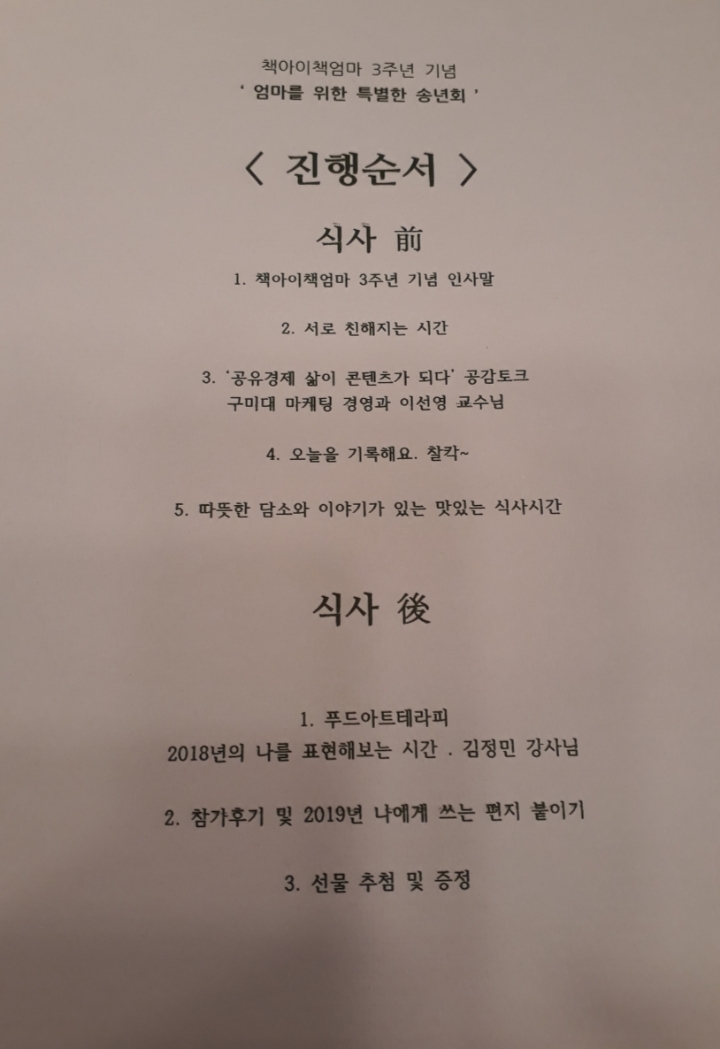 책아이책엄마 3주년 기념
' 엄마를 위한 특별한 송년회 '
< 진행순서 >
식사 前
1. 책아이책엄마 3주년 기념 인사말
2. 서로 친해지는 시간
3. '공유경제 삶이 콘텐츠가 되다' 공감토크
구미대 마케팅 경영과 이선영 교수님
4. 오늘을 기록해요. 찰칵~
5. 따뜻한 담소와 이야기가 있는 맛있는 식사시간
식사 後
1. 푸드아트테라피
2018년의 나를 표현해보는 시간 . 김정민 강사님
2. 참가후기 및 2019년 나에게 쓰는 편지 붙이기
3. 선물 추첨 및 증정